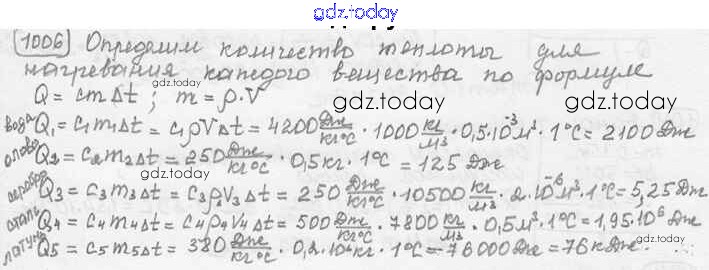 gdz.today
1006 Определим количество теплоты для
нагревания каждого вещества по формуле
gdz.today
Q = cmΔt ; m = ρ·V
gdz.today
gdz.today
вода Q₁ = c₁m₁Δt = c₁ρVΔt = 4200 Дж/кг°C · 1000 кг/м³ · 0,5·10⁻³м³ · 1°C = 2100 Дж
олово Q₂ = c₂m₂Δt = 250 Дж/кг°C · 0,5кг · 1°C = 125 Дж
серебро Q₃ = c₃m₃Δt = c₃ρV₃Δt = 250 Дж/кг°C · 10500 кг/м³ · 2·10⁻⁶м³ · 1°C = 5,25 Дж
сталь Q₄ = c₄m₄Δt = c₄ρ₄V₄Δt = 500 Дж/кг°C · 7800 кг/м³ · 0,5м³ · 1°C = 1,95·10⁶ Дж
латунь Q₅ = c₅m₅Δt = 380 Дж/кг°C · 0,2·10³кг · 1°C = 76000Дж = 76кДж.
gdz.today
gdz.today